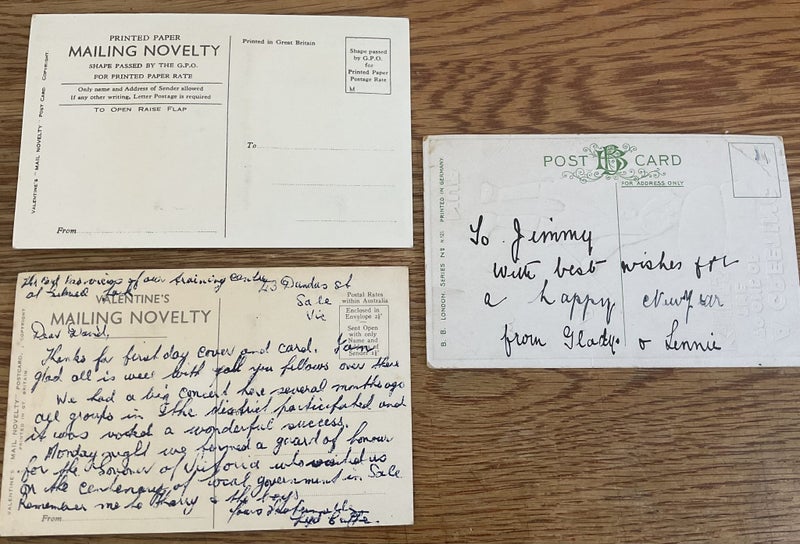 PRINTED PAPER
MAILING NOVELTY
SHAPE PASSED BY THE G.P.O.
FOR PRINTED PAPER RATE
Only name and Address of Sender allowed
If any other writing, Letter Postage is required
TO OPEN RAISE FLAP
VALENTINE'S "MAIL NOVELTY" POST CARD. COPYRIGHT.
From
Printed in Great Britain
Shape passed
by G.P.O.
for
Printed Paper
Postage Rate
M
To
POST CARD
FOR ADDRESS ONLY
B. B. LONDON. SERIES No PRINTED IN GERMANY.
To Jimmy
with best wishes for
a happy New Year
from Gladys & Lennie
of our training centre
at
23 Dundas St
Sale
Vic
VALENTINE'S
MAILING NOVELTY
Postal Rates
within Australia
Enclosed in
Envelope
Sent Open
with only
Name and
Sender
VALENTINE'S "MAIL NOVELTY" POSTCARD.
PRINTED IN GT. BRITAIN
COPYRIGHT
Dear
Thanks for first day cover and card. I am
glad all is well with you fellows over there
We had a big concert here several months ago
all groups in the district participated and
it was voted a wonderful success.
Monday night we formed a guard of honour
for the Governor of Victoria who visited us
on the centenary of local government in Sale
Remember me to Harry & the boys
Yours
From